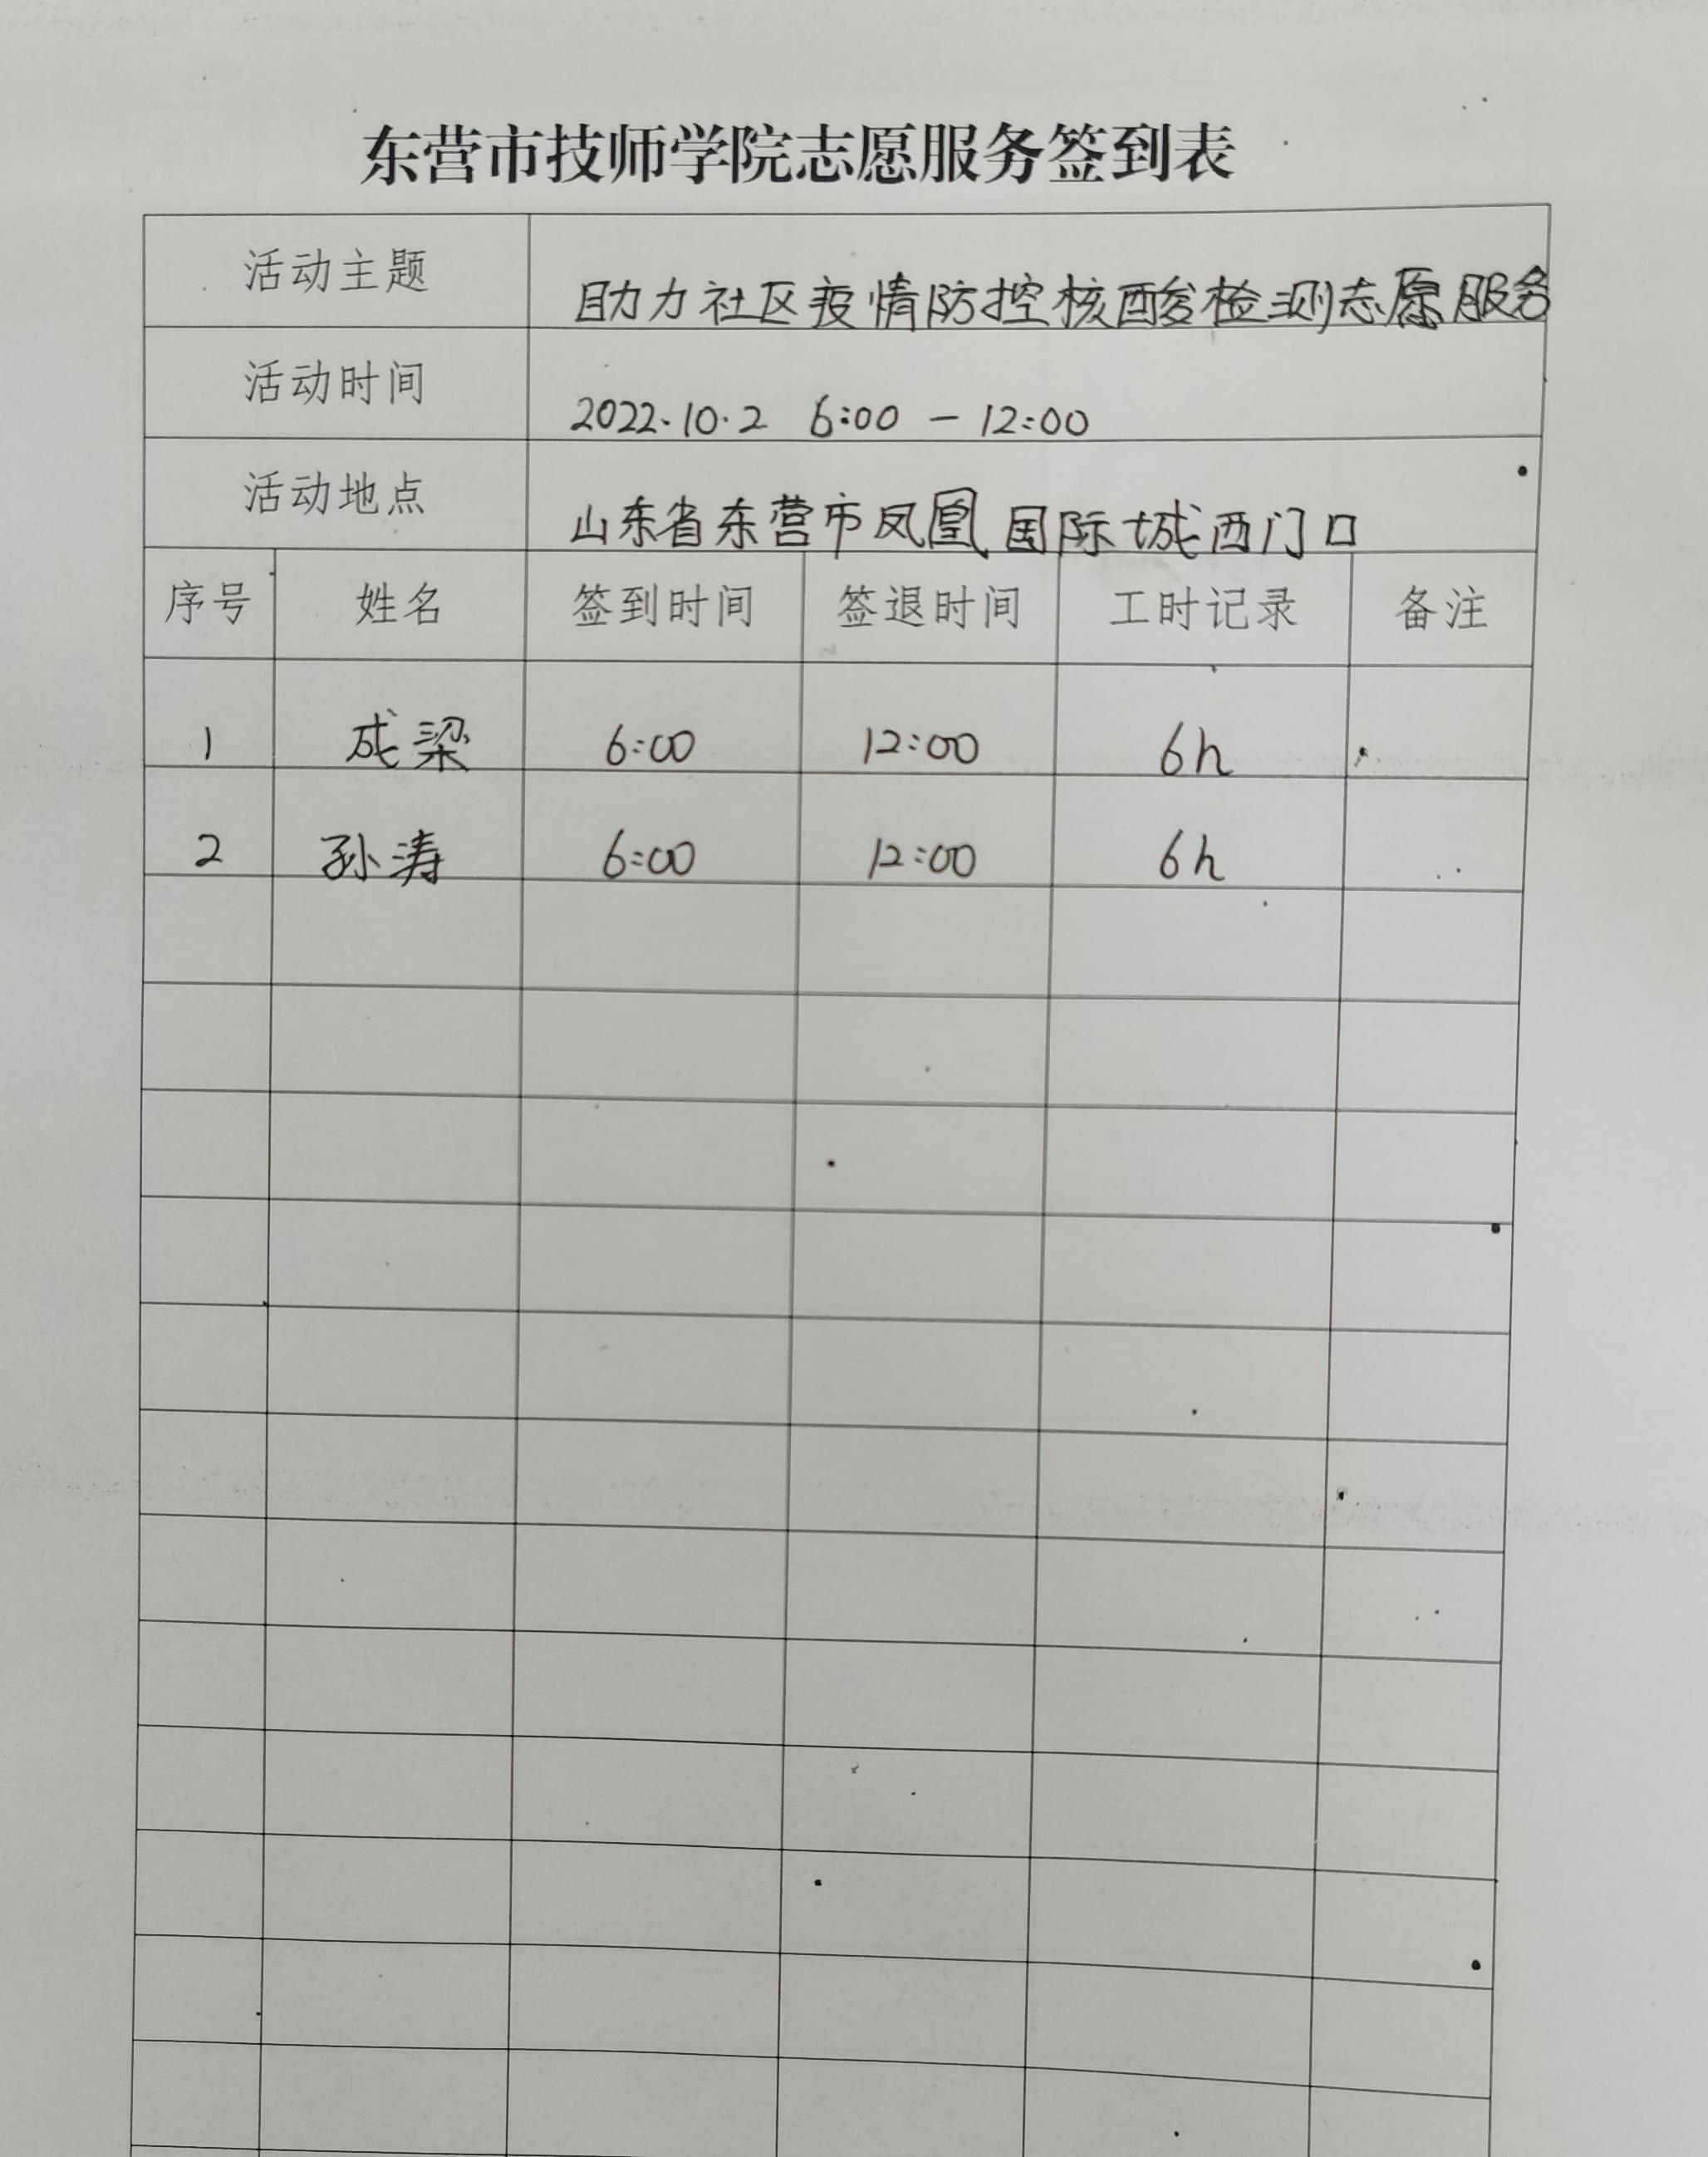 东营市技师学院志愿服务签到表
活动主题 助力社区疫情防控核酸检测志愿服务
活动时间 2022.10.2 6:00 — 12:00
活动地点 山东省东营市凤凰国际城西门口
序号 姓名 签到时间 签退时间 工时记录 备注
1 成梁 6:00 12:00 6h
2 孙涛 6:00 12:00 6h